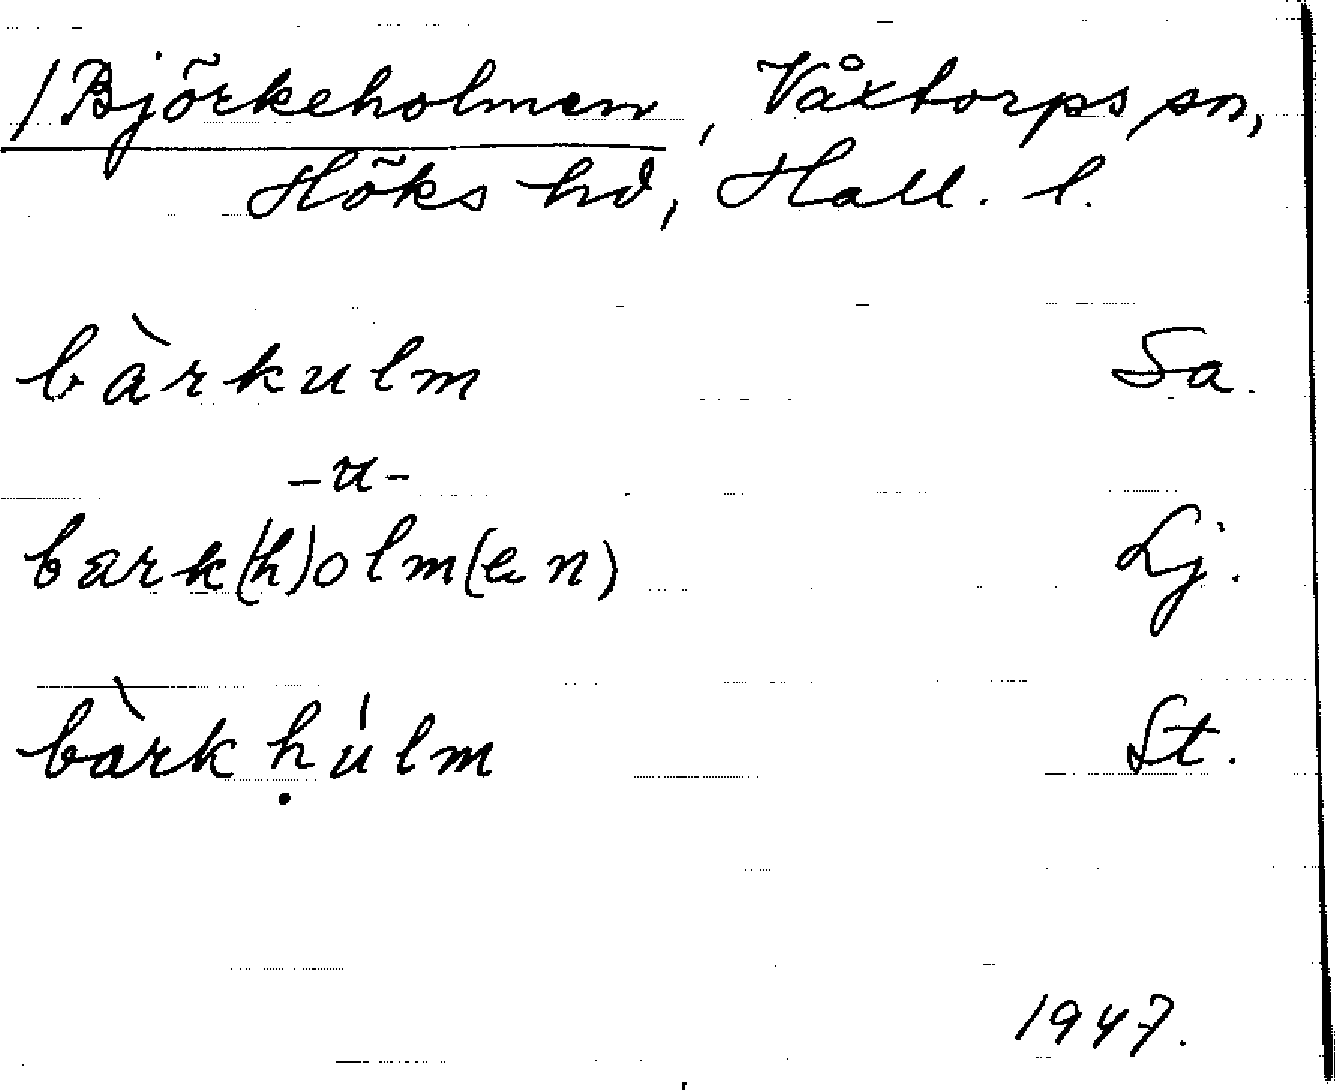 /Björkeholmen, Våxtorps sn,
Höks hd, Hall. l.
bàrkulm Sa.
-u-
bark(h)olm(en) Lj.
bàrkḥúlm St.
1947.